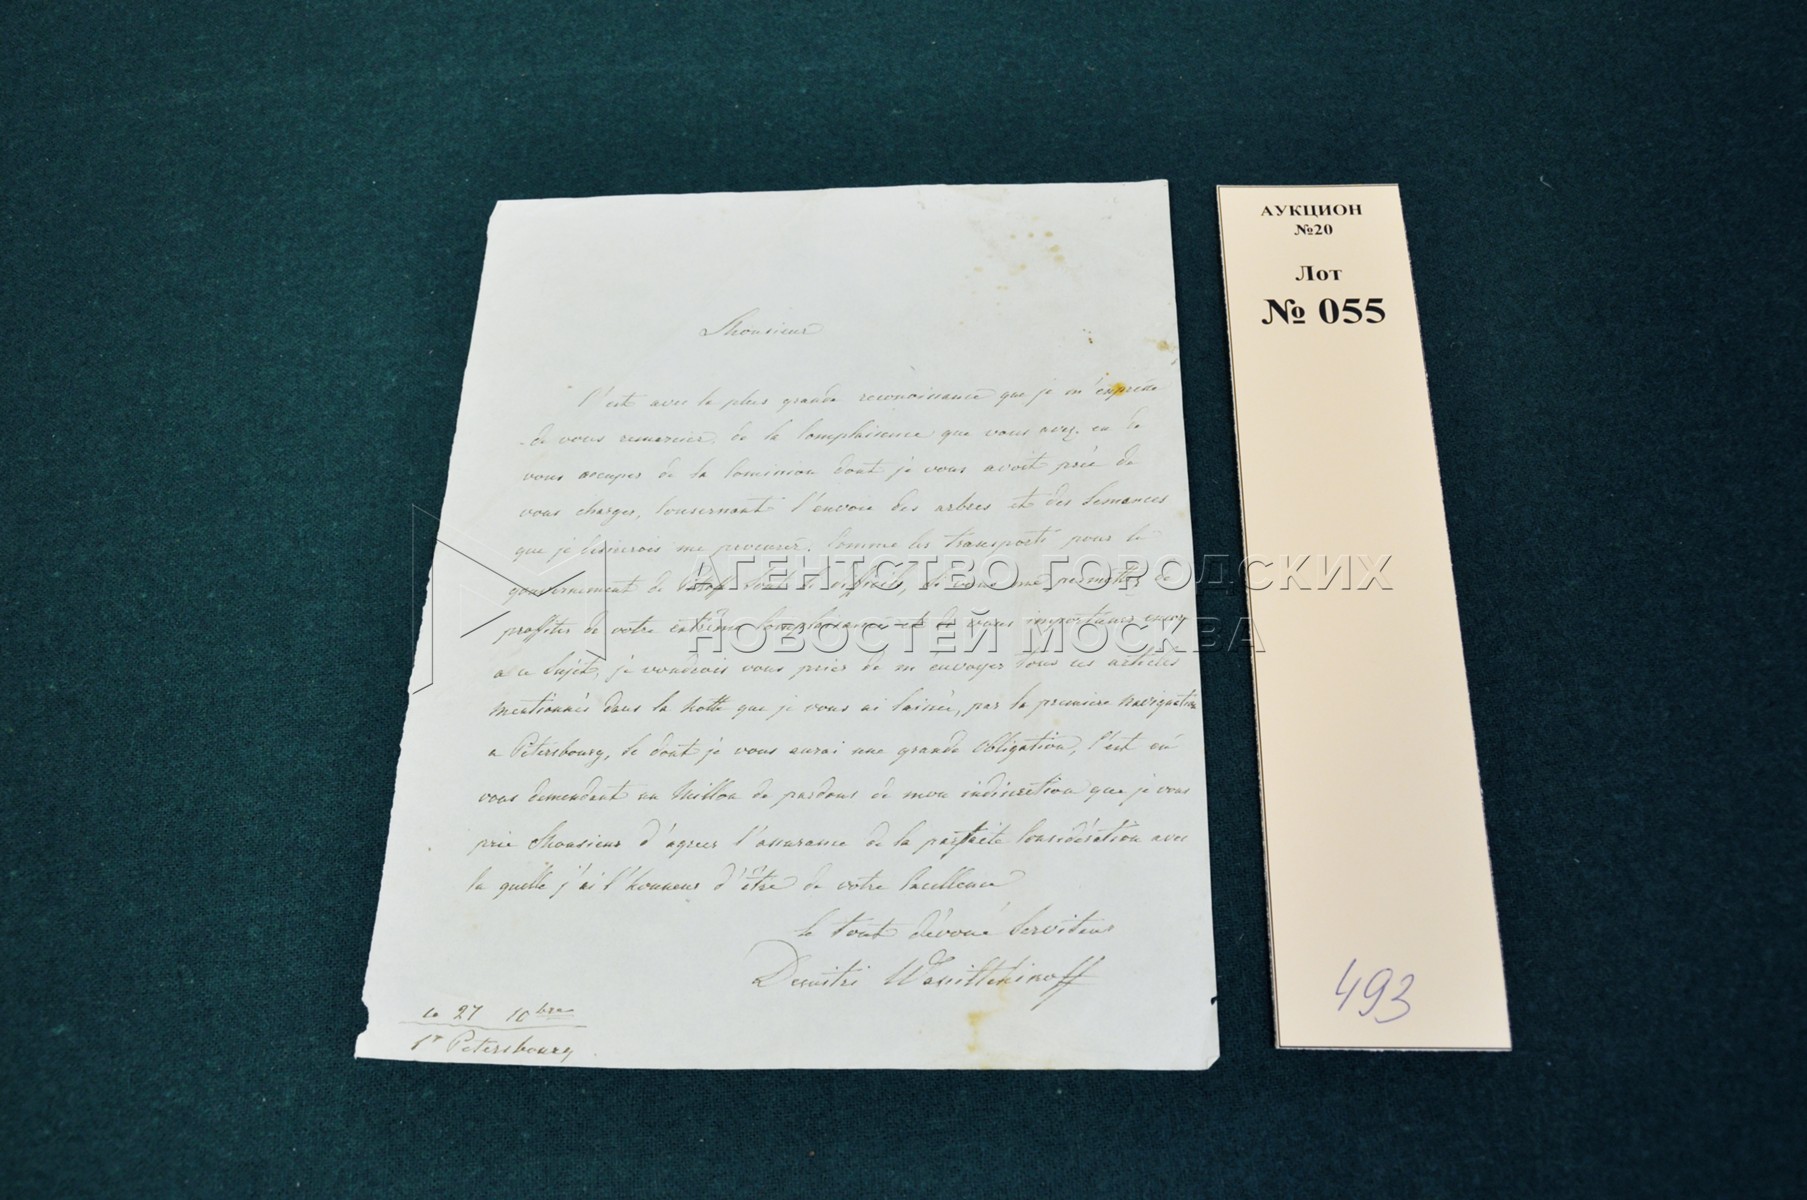 Monsieur
C'est avec la plus grande reconoissance que je m'empresse
de vous remercier de la Complaisence que vous avez eu de
vous occuper de la Comission dont je vous avoit prié de
vous charger, Consernant l'envoie des arbres et des Semances
que je desirerois me procurer. Comme les transports pour le
gouvernement de sont si difficils, si vous me permettez de
profiter de votre extrême Complaisance et de vous importuner encore
a ce Sujet, je voudrois vous prier de m'envoyer tous ces articles
mentionnés dans la notte que je vous ai laissée, par la premiere navigation
a Petersbourg, Ce dont je vous aurai une grande obligation, C'est en
vous demandant un Million de pardons de mon indiscretion que je vous
prie Monsieur d'agreer l'assurance de la parfaite Considération avec
la quelle j'ai l'honneur d'être de votre Excellence
le tout dévoué Serviteur
Demitri Wassiltchikoff
le 27 10bre
St Petersbourg
АУКЦИОН
№20
Лот
№ 055
493
АГЕНТСТВО ГОРОДСКИХ
НОВОСТЕЙ МОСКВА